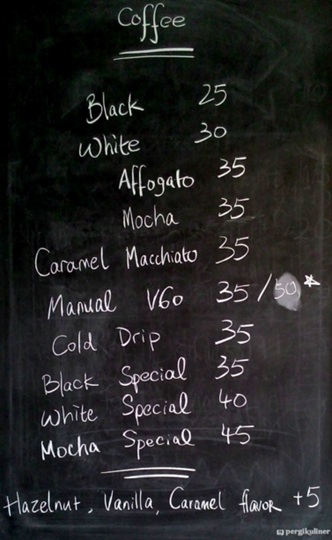 Coffee
Black 25
White 30
Affogato 35
Mocha 35
Caramel Macchiato 35
Manual V60 35/50*
Cold Drip 35
Black Special 35
White Special 40
Mocha Special 45
Hazelnut, Vanilla, Caramel flavor +5
pergikuliner